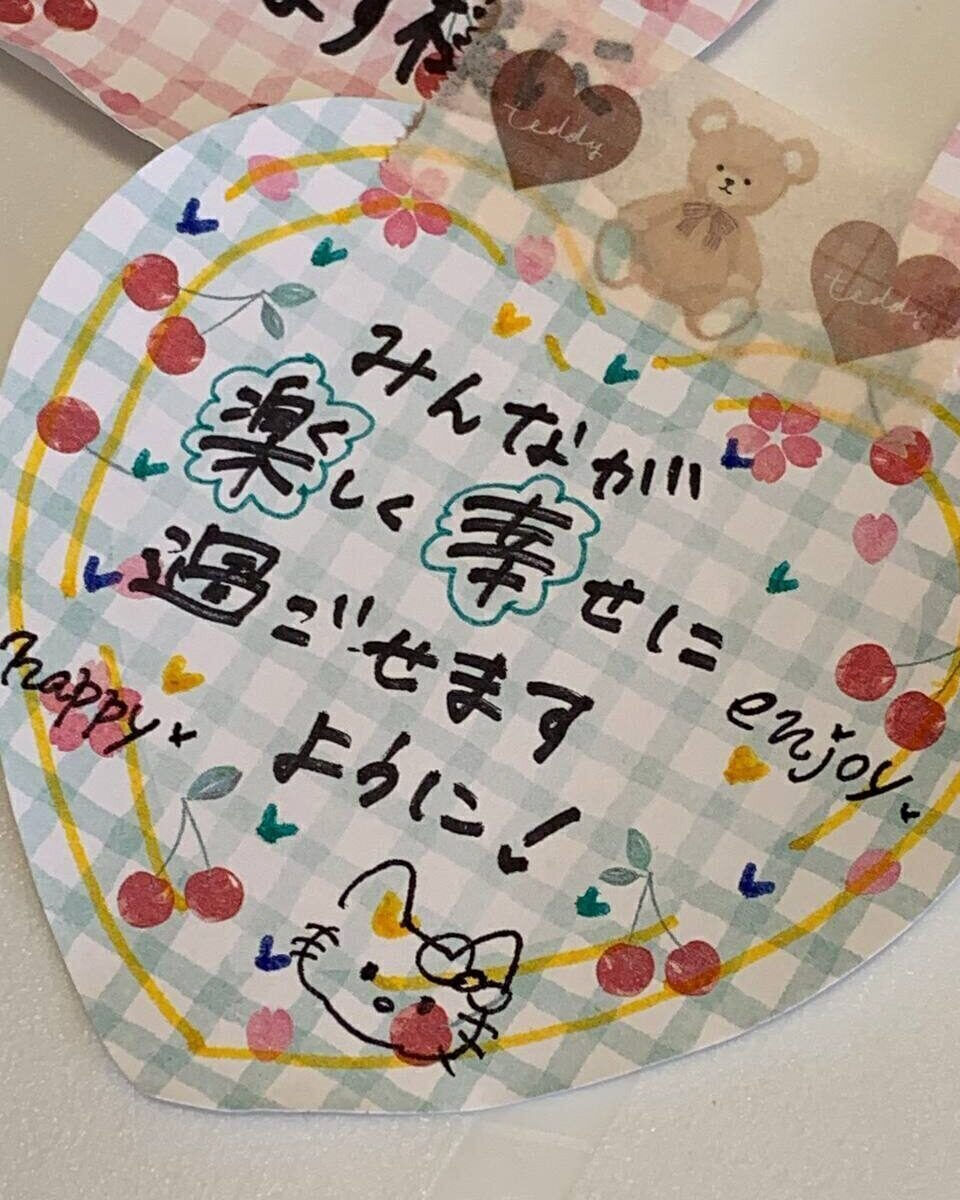 ます
teddy
teddy
みんなが
楽しく幸せに
過ごせます
ように!
happy
enjoy